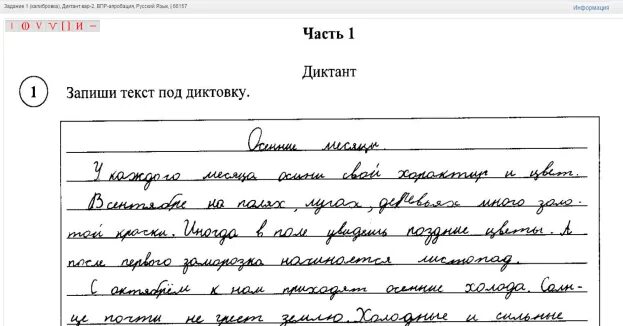 Задание 1 (калибровка), Диктант-вар-2, ВПР-апробация, Русский Язык, | 66157
Информация
I Ф V V [ ] И −
Часть 1
Диктант
1 Запиши текст под диктовку.
Осенние месяцы.
У каждого месяца осини свой характир и цвет.
В сентябре на полях, лугах, деревьях много золо-
той краски. Иногда в поле увидешь поздние цветы. А
после первого заморозка начинается листопад.
С октябрём к нам приходят осенние холода. Солн-
це почти не греет землю. Холодные и сильные